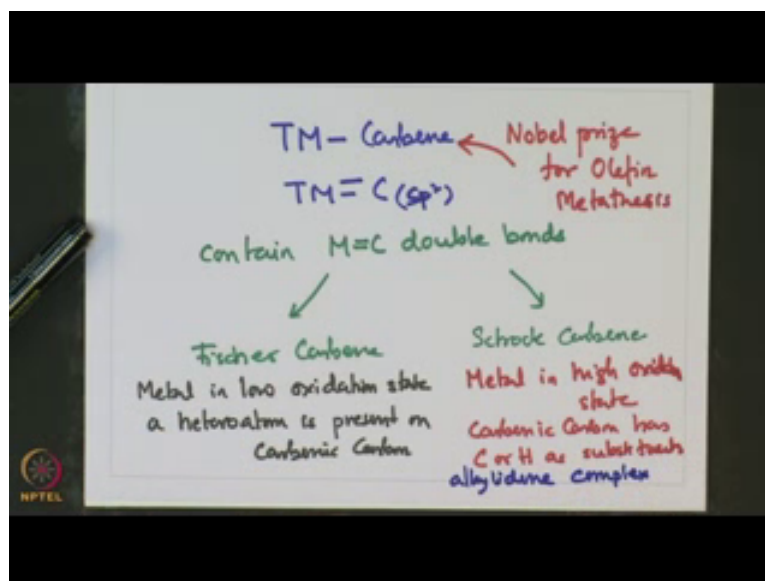 TM - Carbene
Nobel prize
for Olefin
Metathesis
TM = C (sp²)
contain M=C double bonds
Fischer Carbene
Metal in low oxidation state
a heteroatom is present on
Carbenic Carbon
Schrock Carbene
Metal in high oxidn
state
Carbenic Carbon has
C or H as substituents
alkylidene complex
NPTEL